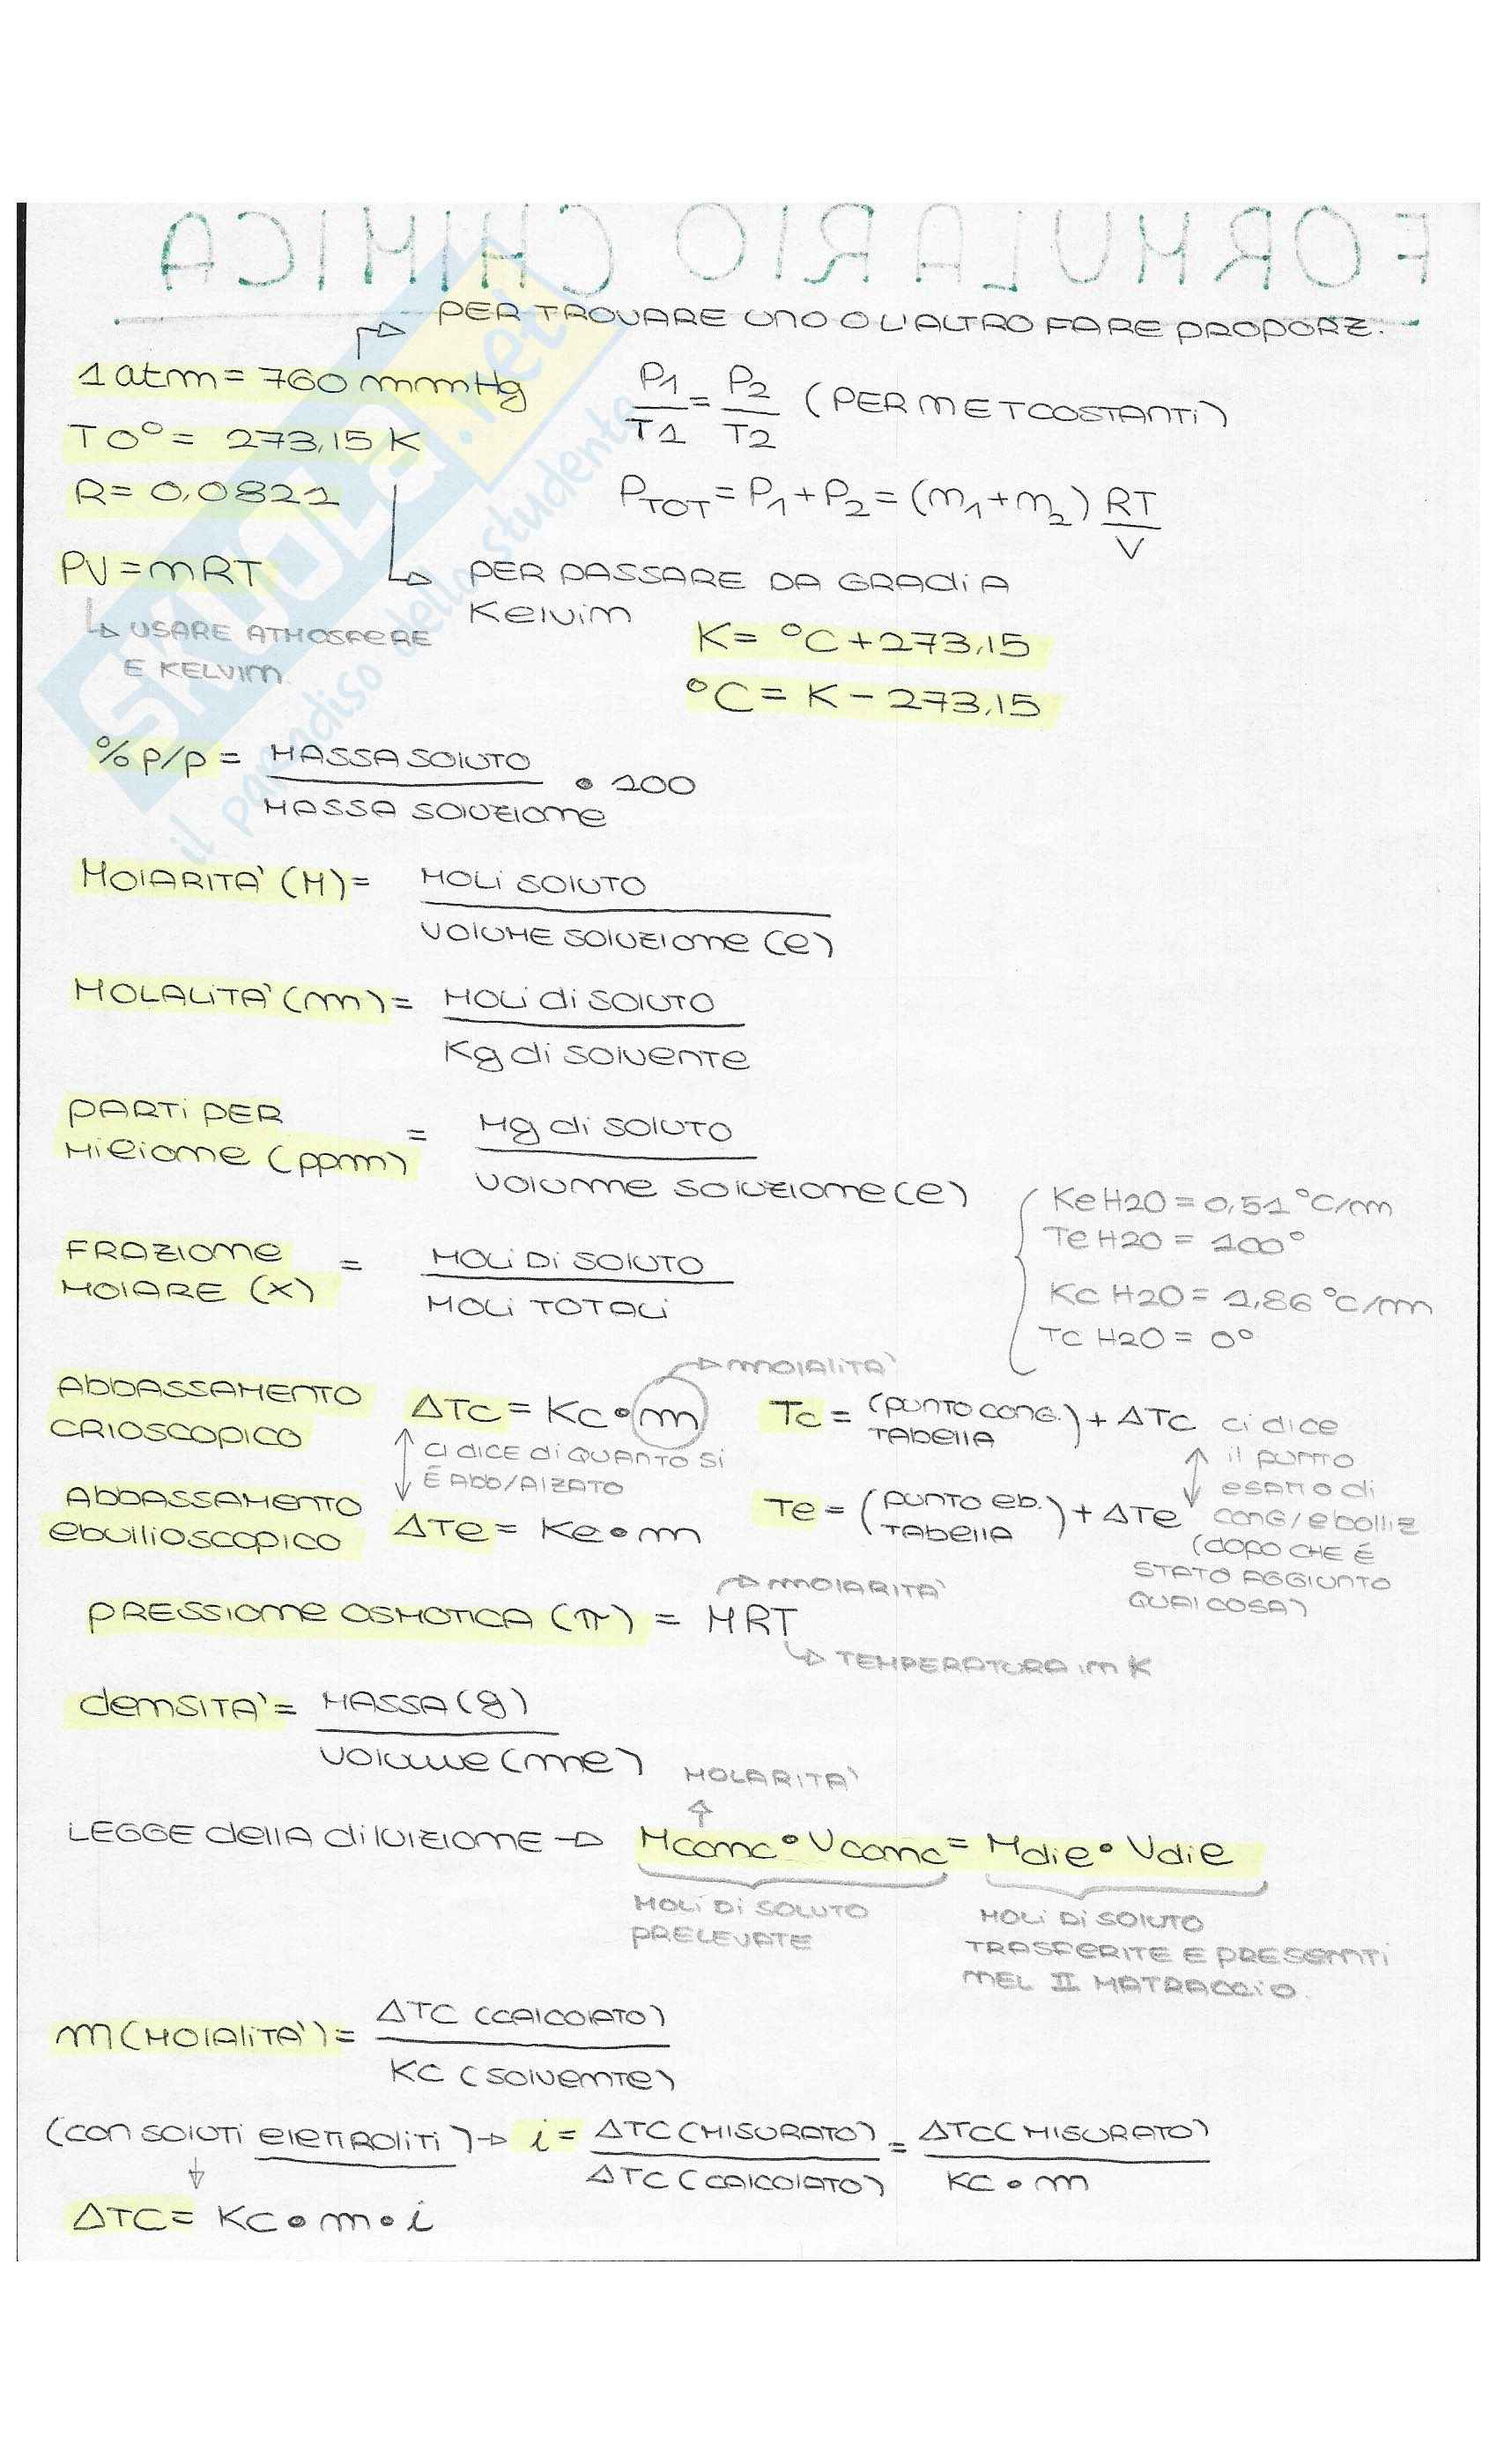 FORMULARIO CHIMICA
PER TROVARE UNO O L'ALTRO FARE PROPORZ.
1 atm = 760 mmHg
T 0° = 273,15 K
R = 0,0821
P1/T1 = P2/T2 (PER n E T COSTANTI)
PTOT = P1 + P2 = (n1 + n2) RT/V
PV = nRT
USARE ATMOSFERE
E KELVIN.
PER PASSARE DA GRADI A
Kelvin
K = °C + 273,15
°C = K - 273,15
% p/p = MASSA SOLUTO / MASSA SOLUZIONE • 100
MOLARITA' (M) = MOLI SOLUTO / VOLUME SOLUZIONE (l)
MOLALITA' (m) = MOLI di SOLUTO / Kg di SOLVENTE
PARTI PER
MILIONE (ppm) = Mg di SOLUTO / VOLUME SOLUZIONE (l)
FRAZIONE
MOLARE (X) = MOLI DI SOLUTO / MOLI TOTALI
Ke H2O = 0,51 °C/m
Te H2O = 100°
Kc H2O = 1,86 °C/m
Tc H2O = 0°
ABBASSAMENTO
CRIOSCOPICO
ΔTc = Kc • m
MOLALITA'
CI DICE DI QUANTO SI
É ABB/ALZATO
Tc = (PUNTO CONG. TABELLA) + ΔTc
ABBASSAMENTO
ebullioscopico
ΔTe = Ke • m
Te = (PUNTO eb. TABELLA) + ΔTe
ci dice
il punto
esatto di
cong/ebolliz
(DOPO CHE É
STATO AGGIUNTO
QUALCOSA)
PRESSIONE OSMOTICA (π) = MRT
MOLARITA'
TEMPERATURA in K
densita' = MASSA (g) / VOLUME (ml)
MOLARITA'
LEGGE della diluizione → Mconc • Vconc = Mdil • Vdil
MOLI DI SOLUTO
PRELEVATE
MOLI DI SOLUTO
TRASFERITE E PRESENTI
NEL II MATRACCIO.
m (MOLALITA') = ΔTC (CALCOLATO) / KC (SOLVENTE)
(CON SOLUTI elettroliti) → i = ΔTC (MISURATO) / ΔTC (CALCOLATO) = ΔTC (MISURATO) / KC • m
ΔTC = KC • m • i
SKUOLA.net
il paradiso dello studente